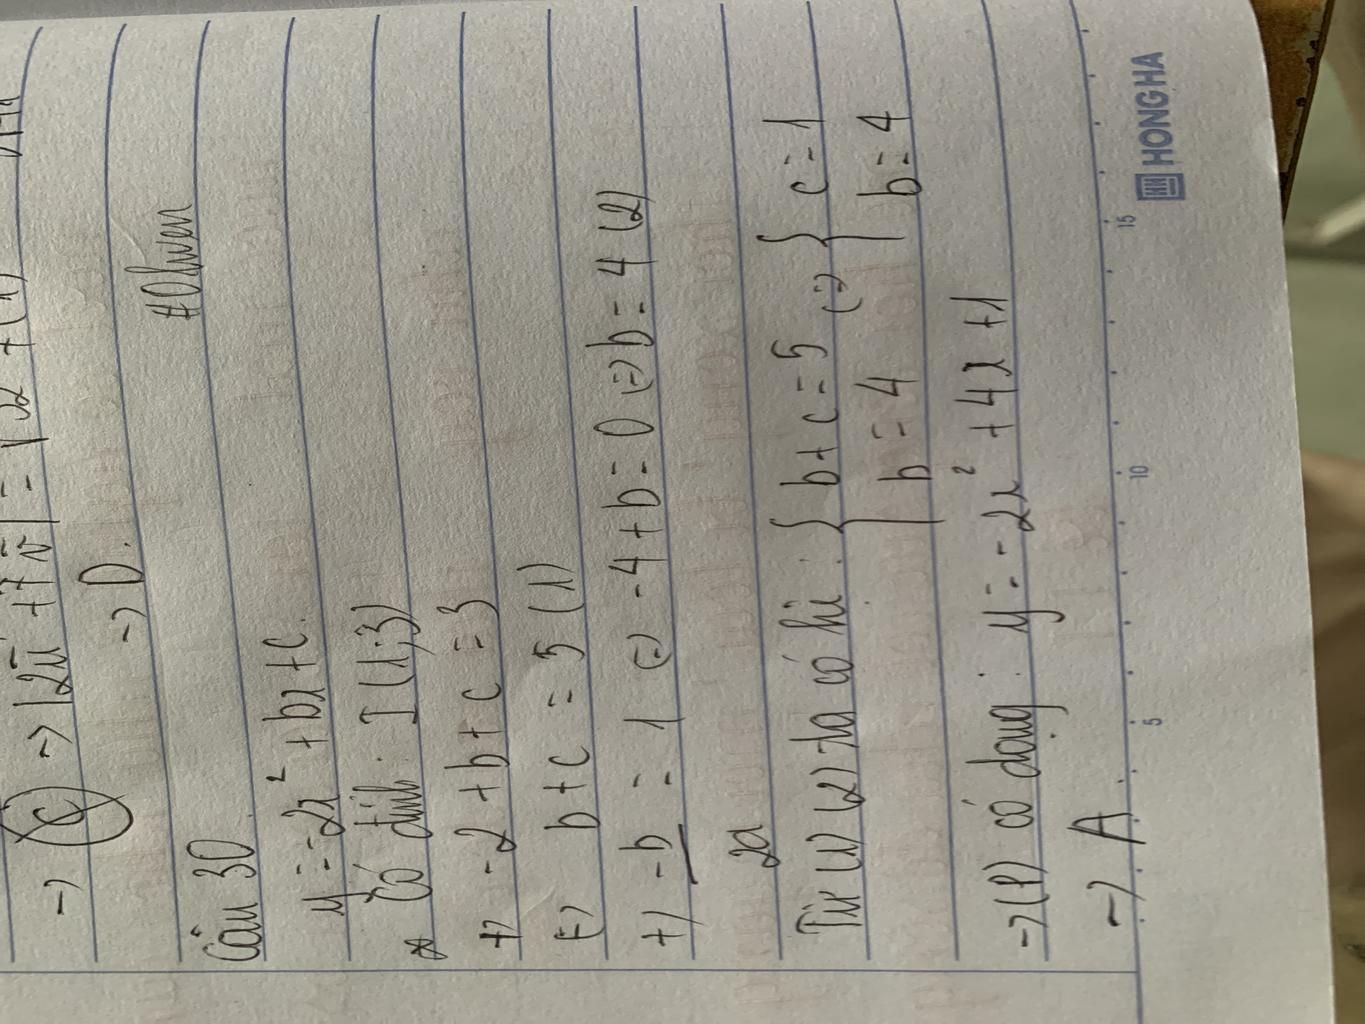 -> C -> |2u + 7v| = √2
-> D.
#Olwen
Câu 30
y = -2x² + bx + c.
* Có đỉnh: I(1;3)
+) -2 + b + c = 3
(=) b + c = 5 (1)
+) -b/2a = 1 (=) -4 + b = 0 (=) b = 4 (2)
Từ (1) (2) ta có hệ: { b + c = 5 (=) { c = 1
b = 4 b = 4
-> (P) có dạng: y = -2x² + 4x + 1
-> A
5 10 15
HONG HA